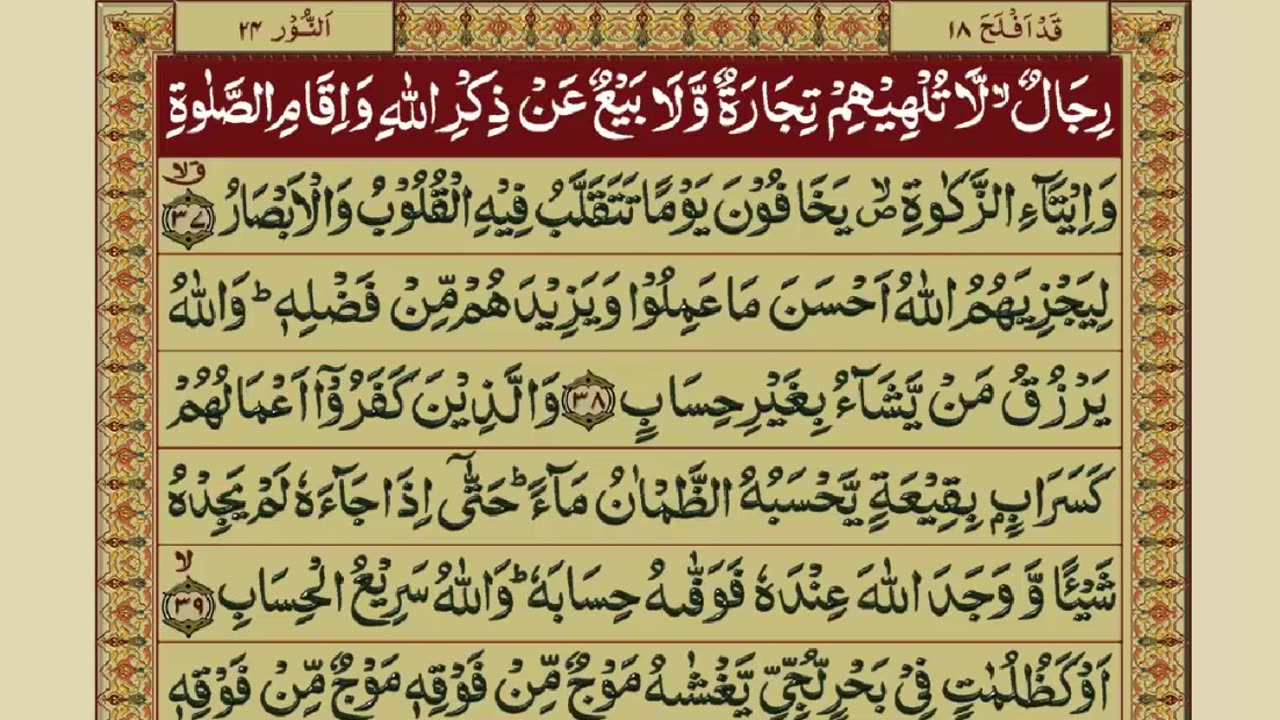 قَدْ اَفْلَحَ ١٨
اَلنُّوْر ٢٤
رِجَالٌ ۙ لَّا تُلْهِيْهِمْ تِجَارَةٌ وَّلَا بَيْعٌ عَنْ ذِكْرِ اللّٰهِ وَاِقَامِ الصَّلٰوةِ
وَاِيْتَآءِ الزَّكٰوةِ ۪ۙ يَخَافُوْنَ يَوْمًا تَتَقَلَّبُ فِيْهِ الْقُلُوْبُ وَالْاَبْصَارُ ۙق ٣٧
لِيَجْزِيَهُمُ اللّٰهُ اَحْسَنَ مَا عَمِلُوْا وَيَزِيْدَهُمْ مِّنْ فَضْلِهٖ ؕ وَاللّٰهُ
يَرْزُقُ مَنْ يَّشَآءُ بِغَيْرِ حِسَابٍ ٣٨ وَالَّذِيْنَ كَفَرُوْٓا اَعْمَالُهُمْ
كَسَرَابٍۭ بِقِيْعَةٍ يَّحْسَبُهُ الظَّمْاٰنُ مَآءً ؕ حَتّٰٓى اِذَا جَآءَهٗ لَمْ يَجِدْهُ
شَيْـًٔا وَّ وَجَدَ اللّٰهَ عِنْدَهٗ فَوَفّٰىهُ حِسَابَهٗ ؕ وَاللّٰهُ سَرِيْعُ الْحِسَابِ ۙ ٣٩
اَوْ كَظُلُمٰتٍ فِيْ بَحْرٍ لُّجِّيٍّ يَّغْشٰىهُ مَوْجٌ مِّنْ فَوْقِهٖ مَوْجٌ مِّنْ فَوْقِهٖ